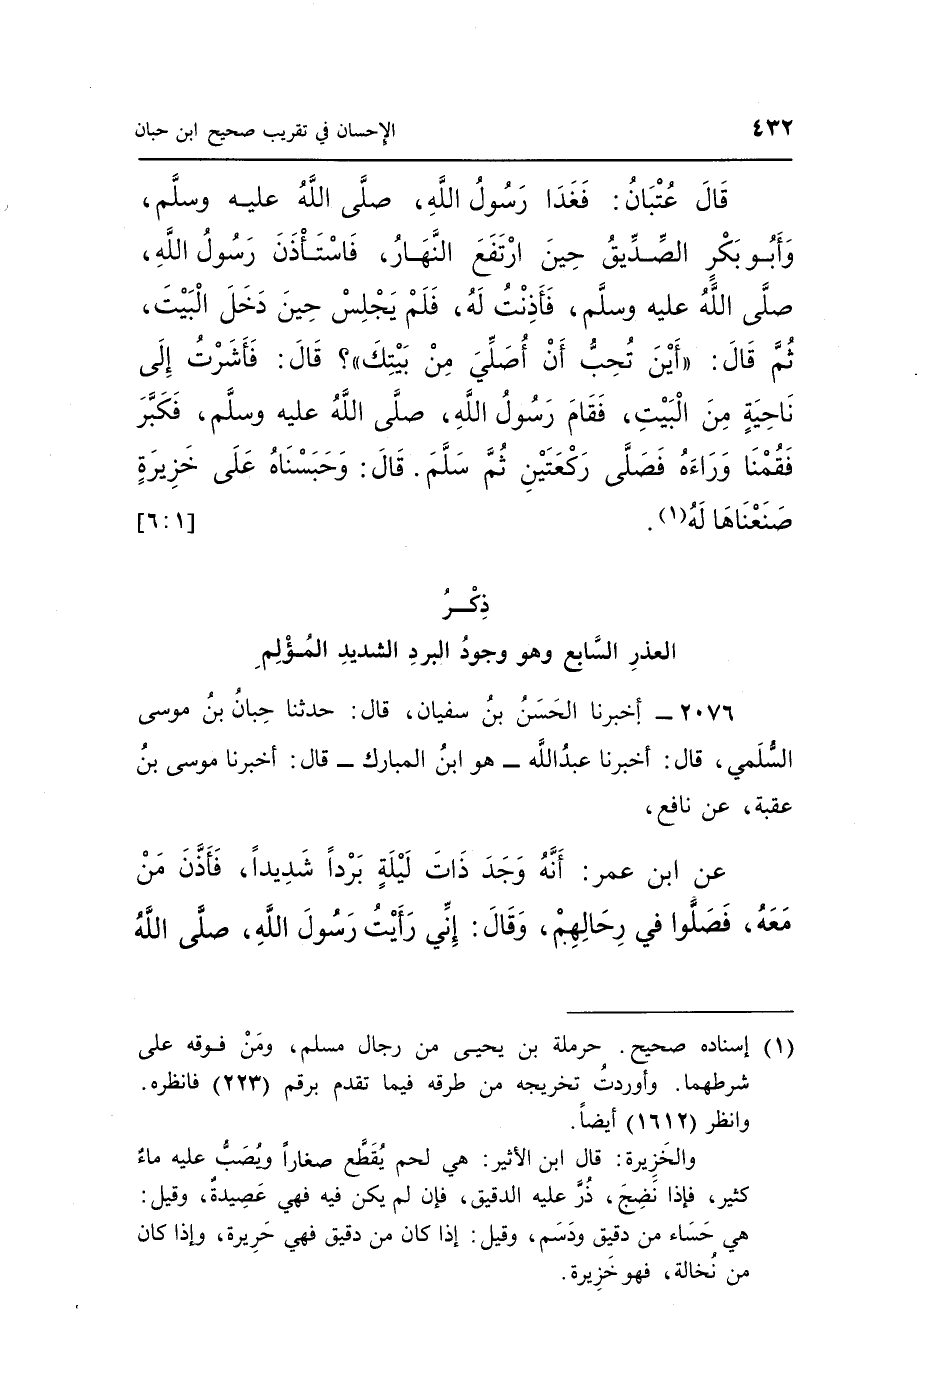 ٤٣٢
الإحسان في تقريب صحيح ابن حبان
قَالَ عُتْبَانُ: فَغَدَا رَسُولُ اللَّهِ، صلَّى اللَّهُ عليه وسلَّم،
وَأَبُو بَكْرٍ الصِّدِّيقُ حِينَ ارْتَفَعَ النَّهَارُ، فَاسْتَأْذَنَ رَسُولُ اللَّهِ،
صلَّى اللَّهُ عليه وسلَّم، فَأَذِنْتُ لَهُ، فَلَمْ يَجْلِسْ حِينَ دَخَلَ الْبَيْتَ،
ثُمَّ قَالَ: «أَيْنَ تُحِبُّ أَنْ أُصَلِّيَ مِنْ بَيْتِكَ»؟ قَالَ: فَأَشَرْتُ إِلَى
نَاحِيَةٍ مِنَ الْبَيْتِ، فَقَامَ رَسُولُ اللَّهِ، صلَّى اللَّهُ عليه وسلَّم، فَكَبَّرَ
فَقُمْنَا وَرَاءَهُ فَصَلَّى رَكْعَتَيْنِ ثُمَّ سَلَّمَ. قَالَ: وَحَبَسْنَاهُ عَلَى خَزِيرَةٍ
صَنَعْنَاهَا لَهُ(١). [٦:١]
ذِكْرُ
العذرِ السَّابع وهو وجودُ البردِ الشديدِ المُؤْلِمِ
٢٠٧٦ ـ أخبرنا الحَسَنُ بنُ سفيان، قال: حدثنا حِبانُ بنُ موسى
السُّلَمي، قال: أخبرنا عبدُاللَّه ـ هو ابنُ المبارك ـ قال: أخبرنا موسى بنُ
عقبة، عن نافع،
عن ابن عمر: أَنَّهُ وَجَدَ ذَاتَ لَيْلَةٍ بَرْداً شَدِيداً، فَأَذَّنَ مَنْ
مَعَهُ، فَصَلُّوا في رِحَالِهِمْ، وَقَالَ: إِنِّي رَأَيْتُ رَسُولَ اللَّهِ، صلَّى اللَّهُ
(١) إسناده صحيح. حرملة بن يحيى من رجال مسلم، ومَنْ فوقه على
شرطهما. وأوردتُ تخريجه من طرقه فيما تقدم برقم (٢٢٣) فانظره.
وانظر (١٦١٢) أيضاً.
والخَزِيرة: قال ابن الأثير: هي لحم يُقَطَّع صغاراً ويُصَبُّ عليه ماءٌ
كثير، فإذا نَضِجَ، ذُرَّ عليه الدقيق، فإن لم يكن فيه فهي عَصِيدةٌ، وقيل:
هي حَسَاء من دقيق ودَسَم، وقيل: إذا كان من دقيق فهي حَرِيرة، وإذا كان
من نُخالة، فهو خَزِيرة.